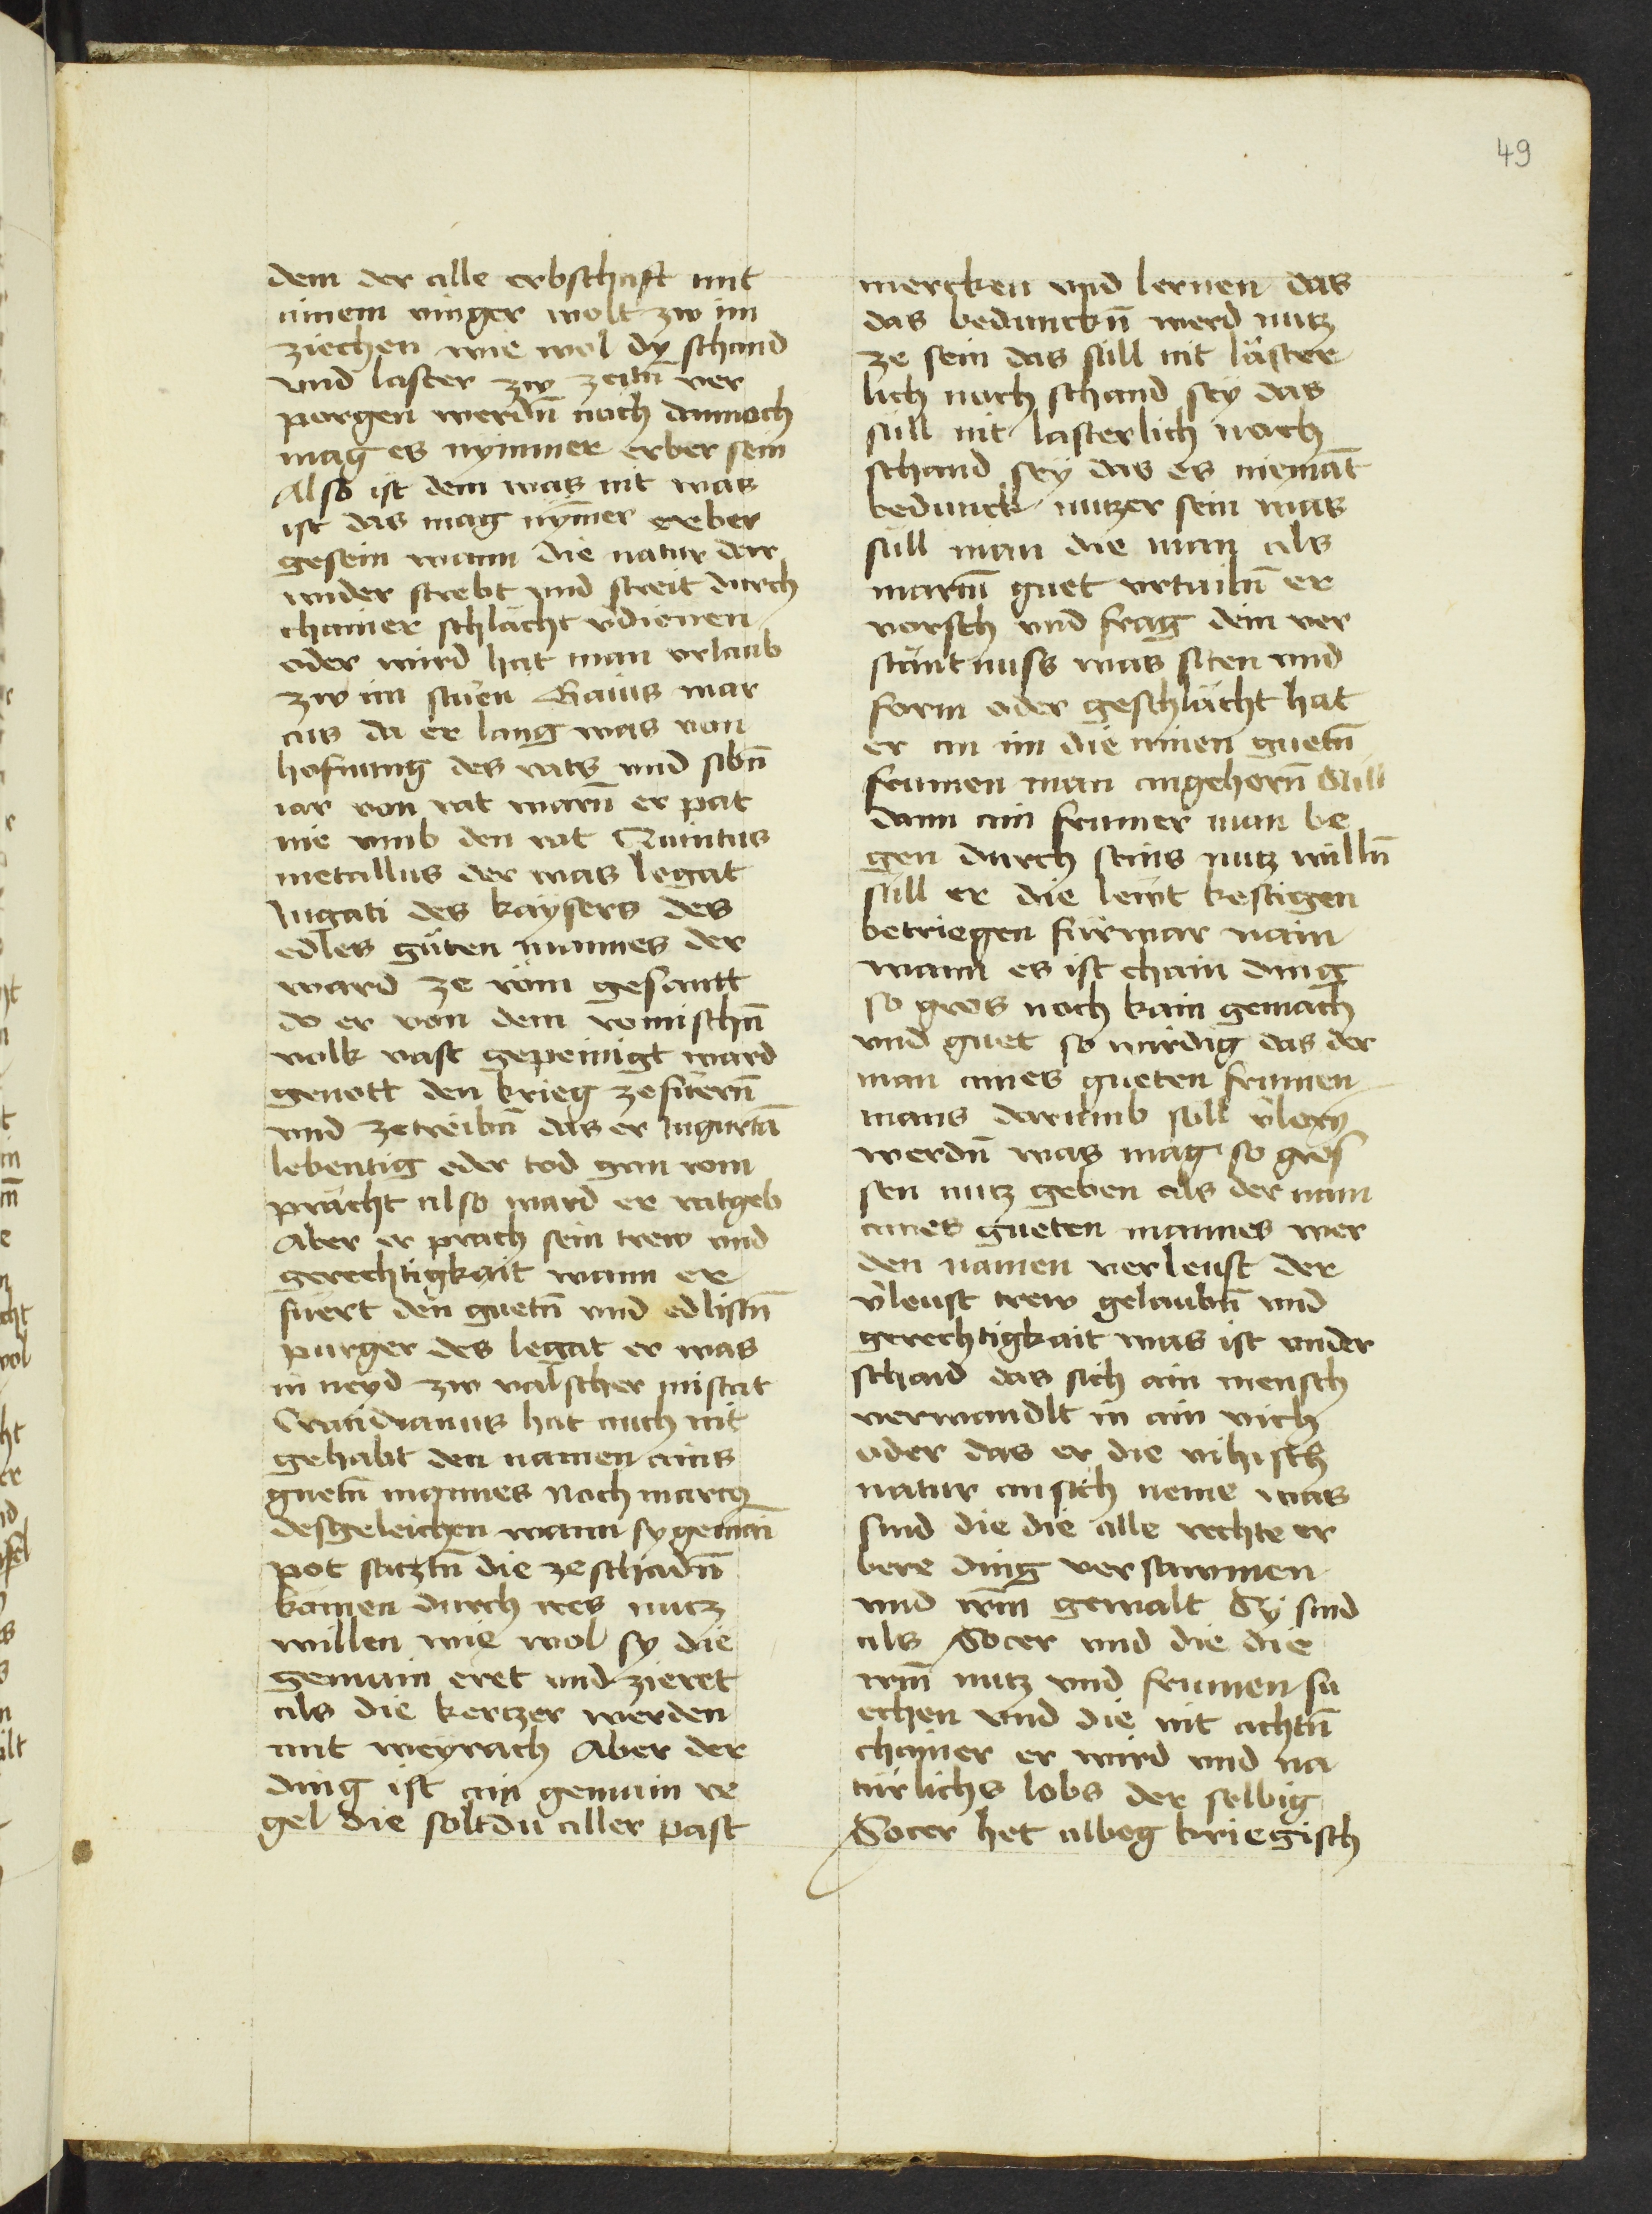 49
dem der alle erbschaft mit
ainem vinger wolt zw im
ziechen wie wol dy schand
vnd laster zw zeitn̄ ver
porgen werdn̄ noch dannoch
mag es nymmer erber sein
Also ist dem was nit was
ist das mag nym̄er erber
gesein wann die natur dar
wider strebt vnd streit durch
chainer schlächt v̓dienen
oder wird hat man vrlaub
zw im Gaius mar
cus da er lang was von
hofnung des rats vnd sibn̄
iar von rat warn̄ er pat
nie vmb den rat Quintus
metallus der was legat
Jugati des kaysers des
edles güten mannes der
ward ze röm gesantt
do er von dem romischn̄
volk vast gepeinigt ward
genott den krieg ze füern̄
vnd zetreibn̄ das er Jugurtā
lebentig oder tod gan rom
prächt also ward er ratgeb
Aber er prach sein trew vnd
gerechtigkait wann er
füert den guetn̄ vnd edlistn̄
purger des legat er was
in neyd zw valscher mistat
Gratidianus hat auch nit
gehabt den namen ains
guetn̄ mannes noch marcꝫ
desgeleichen wann sy gemain
pot satztn̄ die ze schadn̄
kämen durch ires nutz
willen wie wol sy die
gemain eret vnd zieret
als die kertzer werden
mit weyrach Aber der
ding ist ain gemain re
gel die soltdu aller past
mercken vnd lernen das
das bedunckn̄ werd nutz
ze sein das süll nit läster
lich noch schand sey das
süll nit lasterlich noch
schand sey das es niemāt
bedunck nutzer sein was
süll man die man als
marcū guet vrtailn̄ er
vorsch vnd frag dein ver
stantnuss was siten vnd
form oder geschlächt hat
er an im die ainen guetn̄
frumen man angehorn̄ Süll
dann ain frumer man be
gen durch seins nutz willn̄
süll er die lewt kestigen
betriegen fürwar nain
wann es ist chain ding
so gros noch kain gemach
vnd guet so wirdig das der
man aines gueten frumen
mans darumb süll v̓lorn̄
werdn̄ was mag so gros
sen nutz geben als der nam
aines gueten mannes wer
den namen verleust der
v̓leust trew gelaubn̄ vnd
gerechtigkait was ist vnder
schaid das sich ain mensch
verwandlt in ain vich
oder das er die vihisch
natur ansich neme was
sind die die alle rechte er
bere ding versawmen
vnd irm̄ gewalt Sy sind
als Socer vnd die die
irm̄ nutz vnd frumen su
echen vnd die nit achtn̄
chainer er wird vnd na
türlichs lobs der selbig
Socer het albeg kriegisch